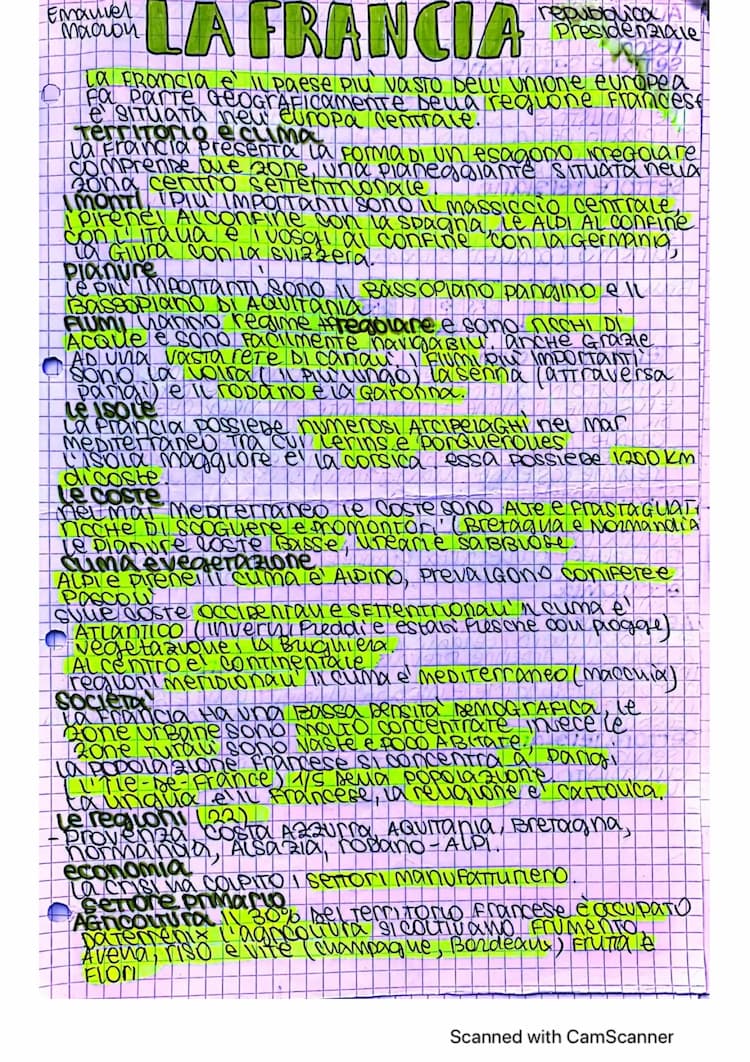 Emanuel
Macron
LA FRANCIA
repubblica
Presidenziale
La Francia e' il paese piu' vasto dell'unione europea
fa parte geograficamente della regione francese
e' situata nell'europa centrale.
territorio e clima
La Francia presenta la forma di un esagono irregolare
comprende due zone, una pianeggiante situata nella
zona centro settentrionale
I monti i piu' importanti sono il massiccio centrale,
i pirenei al confine con la spagna, le alpi al confine
con l'italia e i vosgi al confine con la Germania,
la Giura con la svizzera.
pianure
le piu' importanti sono il bassopiano parigino e il
bassopiano di aquitania
fiumi hanno regime regolare e sono ricchi di
acque e sono facilmente navigabili, anche grazie
ad una vasta rete di canali i fiumi piu' importanti
sono la loira (il piu' lungo) la senna (attraversa
parigi) e il rodano e la garonna.
le isole
la francia possiede numerosi arcipelaghi nel mar
mediterraneo tra cui Lerins e Porquerolles
l'isola maggiore e' la corsica. essa possiede 1200 km
di coste
le coste
nel mar mediterraneo le coste sono alte e frastagliate
ricche di scogliere e promontori (Bretagna e Normandia
le pianure coste basse, lineari e sabbiose
clima e vegetazione
Alpi e pirenei il clima e' alpino, prevalgono conifere e
pascoli
sulle coste occidentali e settentrionali il clima e'
atlantico (inverni freddi e estati fresche con piogge)
vegetazione: la brughiera.
al centro e' continentale
regioni meridionali il clima e' mediterraneo (macchia)
societa'
la Francia ha una bassa densita' demografica, le
zone urbane sono molto concentrate invece le
zone rurali sono vaste e poco abitate.
la popolazione francese si concentra a parigi
(l'ile-de-france) 1/5 della popolazione
la lingua e' il francese, la religione e' cattolica.
le regioni (22)
- provenza, costa azzurra, aquitania, bretagna,
normandia, alsazia, rodano-alpi.
economia
la crisi ha colpito i settori manufatturiero.
settore primario
agricoltura il 30% del territorio francese e' occupato
l'agricoltura si coltivano frumento,
avena, riso e vite (champagne, Bordeaux) frutta e
fiori
Scanned with CamScanner